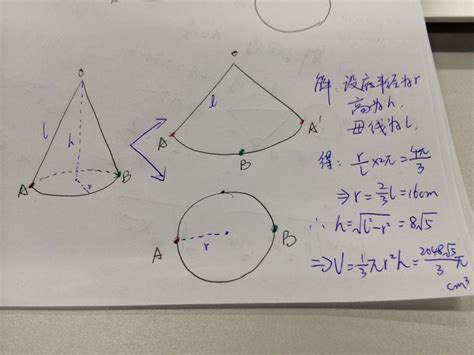 O
l
h
A
B
r
O
l
A
A'
B
A
r
B
解：设底半径为r
高为h，
母线为l，
得：r/l×2π=4π/3
⇒r=2/3 l=16cm
∴ h=√l²-r²=8√5
⇒V=1/3πr²h=2048√5/3 π
cm³